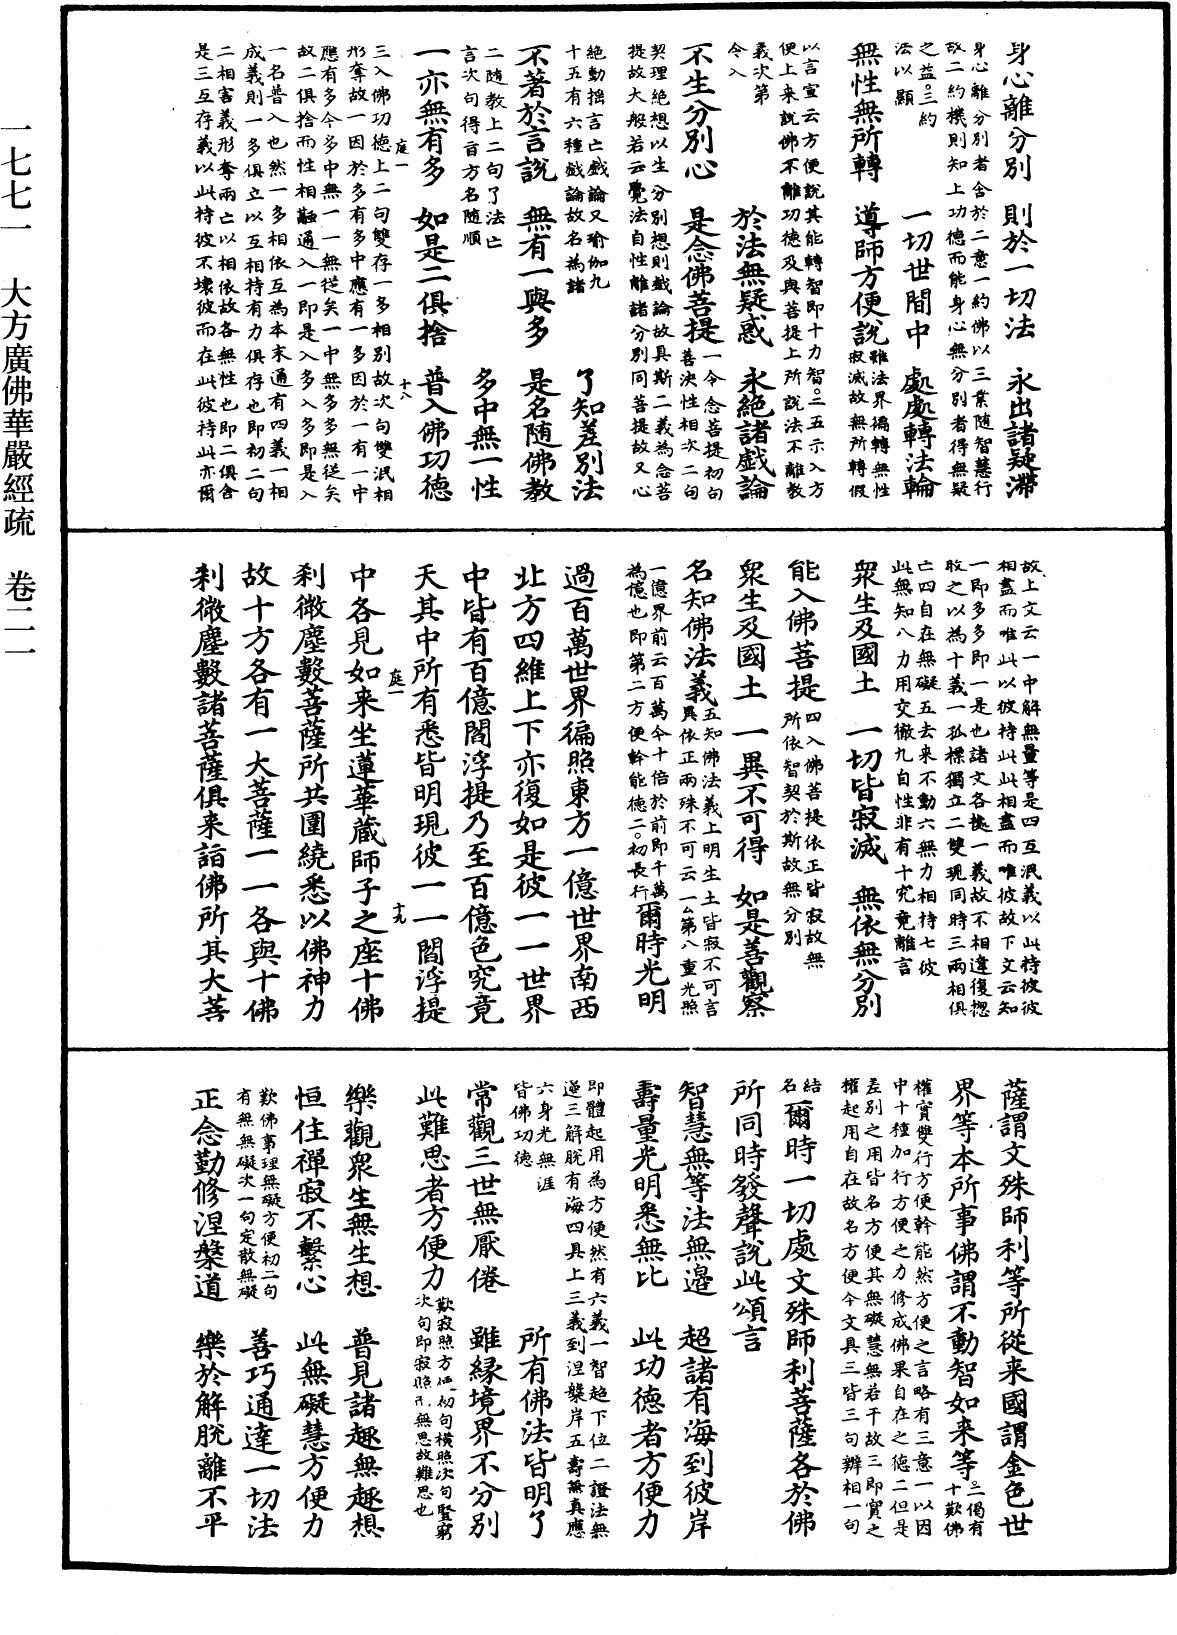 身心離分別　則於一切法　永出諸疑滯
身心離分別者含於二意一約佛以三業隨智慧行
故二約機則知上功德而能身心無分別者得無疑
之益。三約
法以顯
一切世間中　處處轉法輪
無性無所轉　導師方便說
雖法界徧轉無性
寂滅故無所轉假
以言宣云方便說其能轉智即十力智。二五示入方
便上來說佛不離功德及與菩提上所說法不離教
義次第
令入
於法無疑惑　永絕諸戲論
不生分別心　是念佛菩提
一令念菩提初句
善決性相次二句
契理絕想以生分別想則戲論故具斯二義為念菩
提故大般若云覺法自性離諸分別同菩提故又心
絕動搖言亡戲論又瑜伽九
十五有六種戲論故名為諸
了知差別法
不著於言說　無有一與多　是名隨佛教
二隨教上二句了法亡
言次句得旨方名隨順
多中無一性
一亦無有多　如是二俱捨　普入佛功德
庭一
十八
三入佛功德上二句雙存一多相別故次句雙泯相
形奪故一因於多有多中應有一多因於一有一中
應有多今多中無一一無從矣一中無多多無從矣
故二俱捨而性相融通入一即是入多入多即是入
一名普入也然一多相依互為本末通有四義一相
成義則一多俱立以互相持有力俱存也即初二句
二相害義形奪兩亡以相依故各無性也即二俱舍
是三互存義以此持彼不壞彼而在此彼持此亦爾
故上文云一中解無量等是四互泯義以此持彼彼
相盡而唯此以彼持此此相盡而唯彼故下文云知
一即多多即一是也諸文各據一義故不相違復揔
收之以為十義一孤標獨立二雙現同時三兩相俱
亡四自在無礙五去來不動六無力相持七彼
此無知八力用交徹九自性非有十究竟離言
眾生及國土　一切皆寂滅　無依無分別
能入佛菩提
四入佛菩提依正皆寂故無
所依智契於斯故無分別
眾生及國土　一異不可得　如是善觀察
名知佛法義
五知佛法義上明生土皆寂不可言
異依正兩殊不可云一△第八重光照
一億界前云百萬今十倍於前即千萬
為億也即第二方便幹能德二。初長行
爾時光明
過百萬世界徧照東方一億世界南西
北方四維上下亦復如是彼一一世界
中皆有百億閻浮提乃至百億色究竟
天其中所有悉皆明現彼一一閻浮提
庭一
十九
中各見如來坐蓮華藏師子之座十佛
剎微塵數菩薩所共圍繞悉以佛神力
故十方各有一大菩薩一一各與十佛
剎微塵數諸菩薩俱來詣佛所其大菩
薩謂文殊師利等所從來國謂金色世
界等本所事佛謂不動智如來等
。二偈有
十歎佛
權實雙行方便幹能然方便之言略有三意一以因
中十種加行方便之力修成佛果自在之德二但是
差別之用皆名方便其無礙慧無若干故三即實之
權起用自在故名方便今文具三皆三句辨相一句
結
名
爾時一切處文殊師利菩薩各於佛
所同時發聲說此頌言
智慧無等法無邊　超諸有海到彼岸
壽量光明悉無比　此功德者方便力
即體起用為方便然有六義一智超下位二證法無
邊三解脫有海四具上三義到涅槃岸五壽無真應
六身光無涯
皆佛功德
所有佛法皆明了
常觀三世無厭倦　雖緣境界不分別
此難思者方便力
歎寂照方便初句橫照次句豎窮
次句即寂照而無思故難思也
樂觀眾生無生想　普見諸趣無趣想
恒住禪寂不繫心　此無礙慧方便力
歎佛事理無礙方便初二句
有無無礙次一句定散無礙
善巧通達一切法
正念勤修涅槃道　樂於解脫離不平
一七七一　大方廣佛華嚴經疏　卷二一